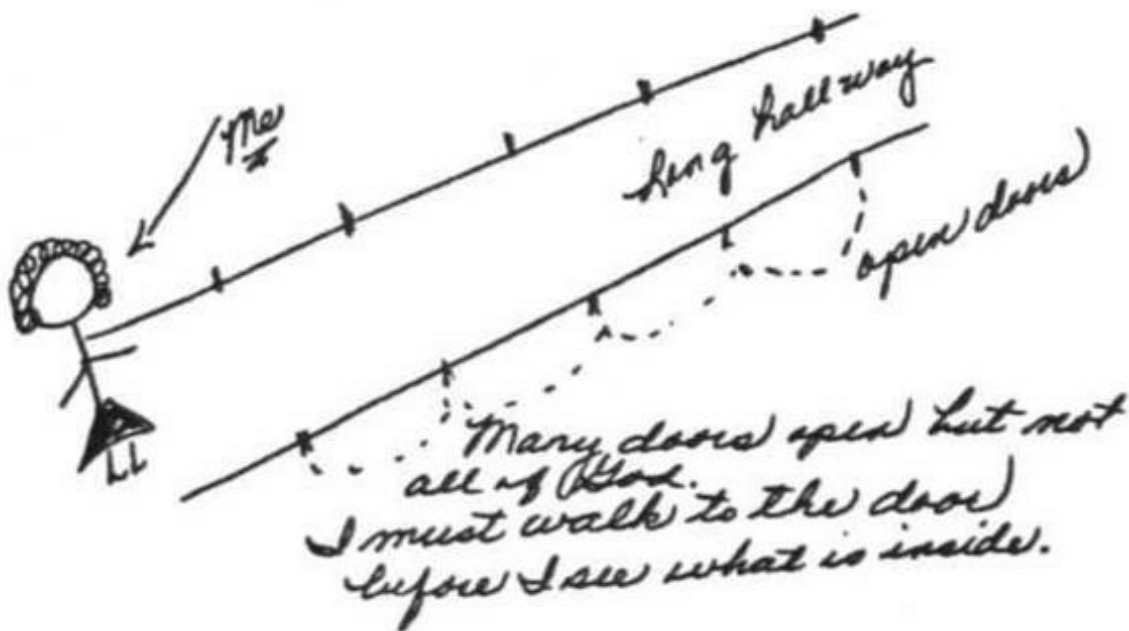 Me
long hallway
open doors
Many doors open but not
all of God.
I must walk to the door
before I see what is inside.